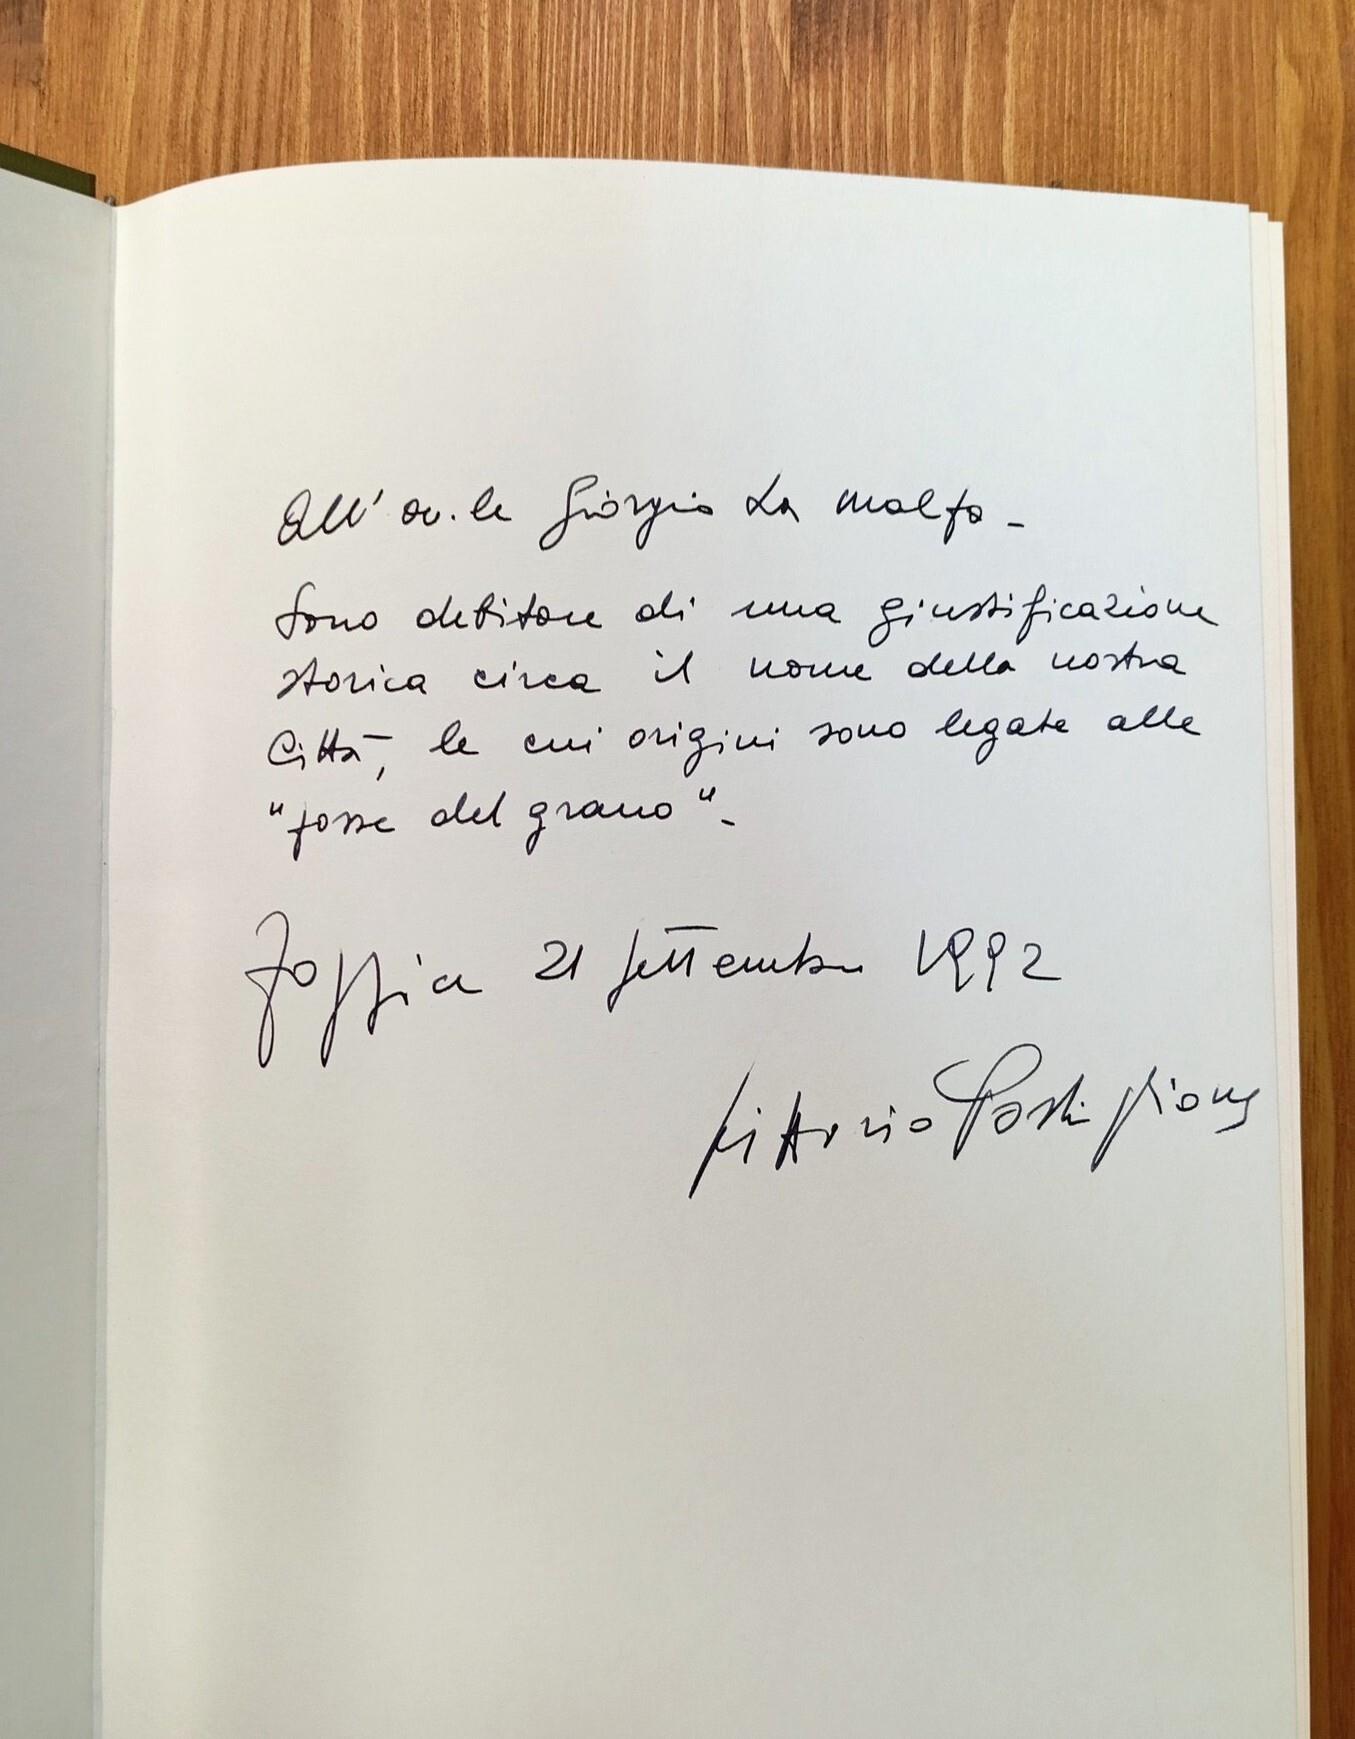 All' on.le Giorgio La Malfa -
Sono debitore di una giustificazione
storica circa il nome della nostra
Città, le cui origini sono legate alle
"fosse del grano" -
Foggia 21 settembre 1992
Vittorio Postiglione